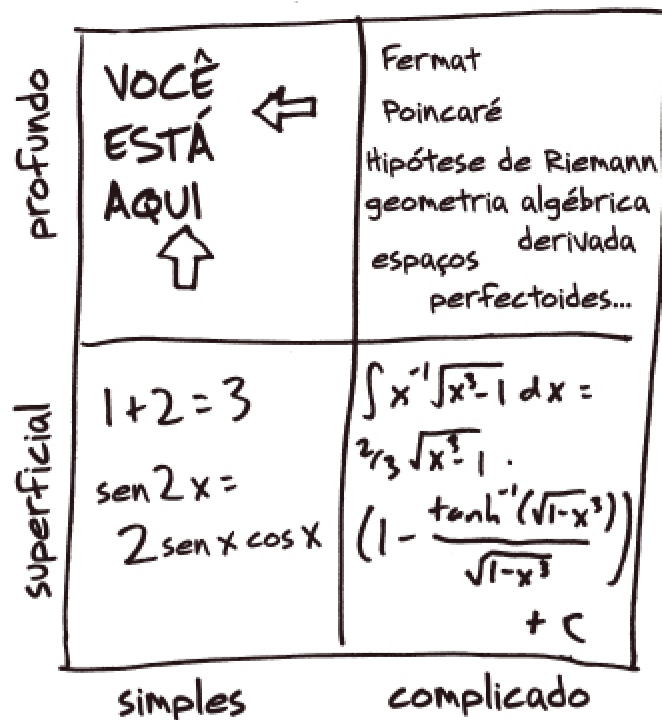 profundo
VOCÊ
ESTÁ
AQUI
Fermat
Poincaré
Hipótese de Riemann
geometria algébrica
derivada
espaços
perfectoides...
superficial
1+2=3
sen2x=
2senxcosx
∫x⁻¹√(x³-1) dx =
2/3 √(x³-1) .
(1 - tanh⁻¹(√(1-x³))/√(1-x³))
+ C
simples
complicado